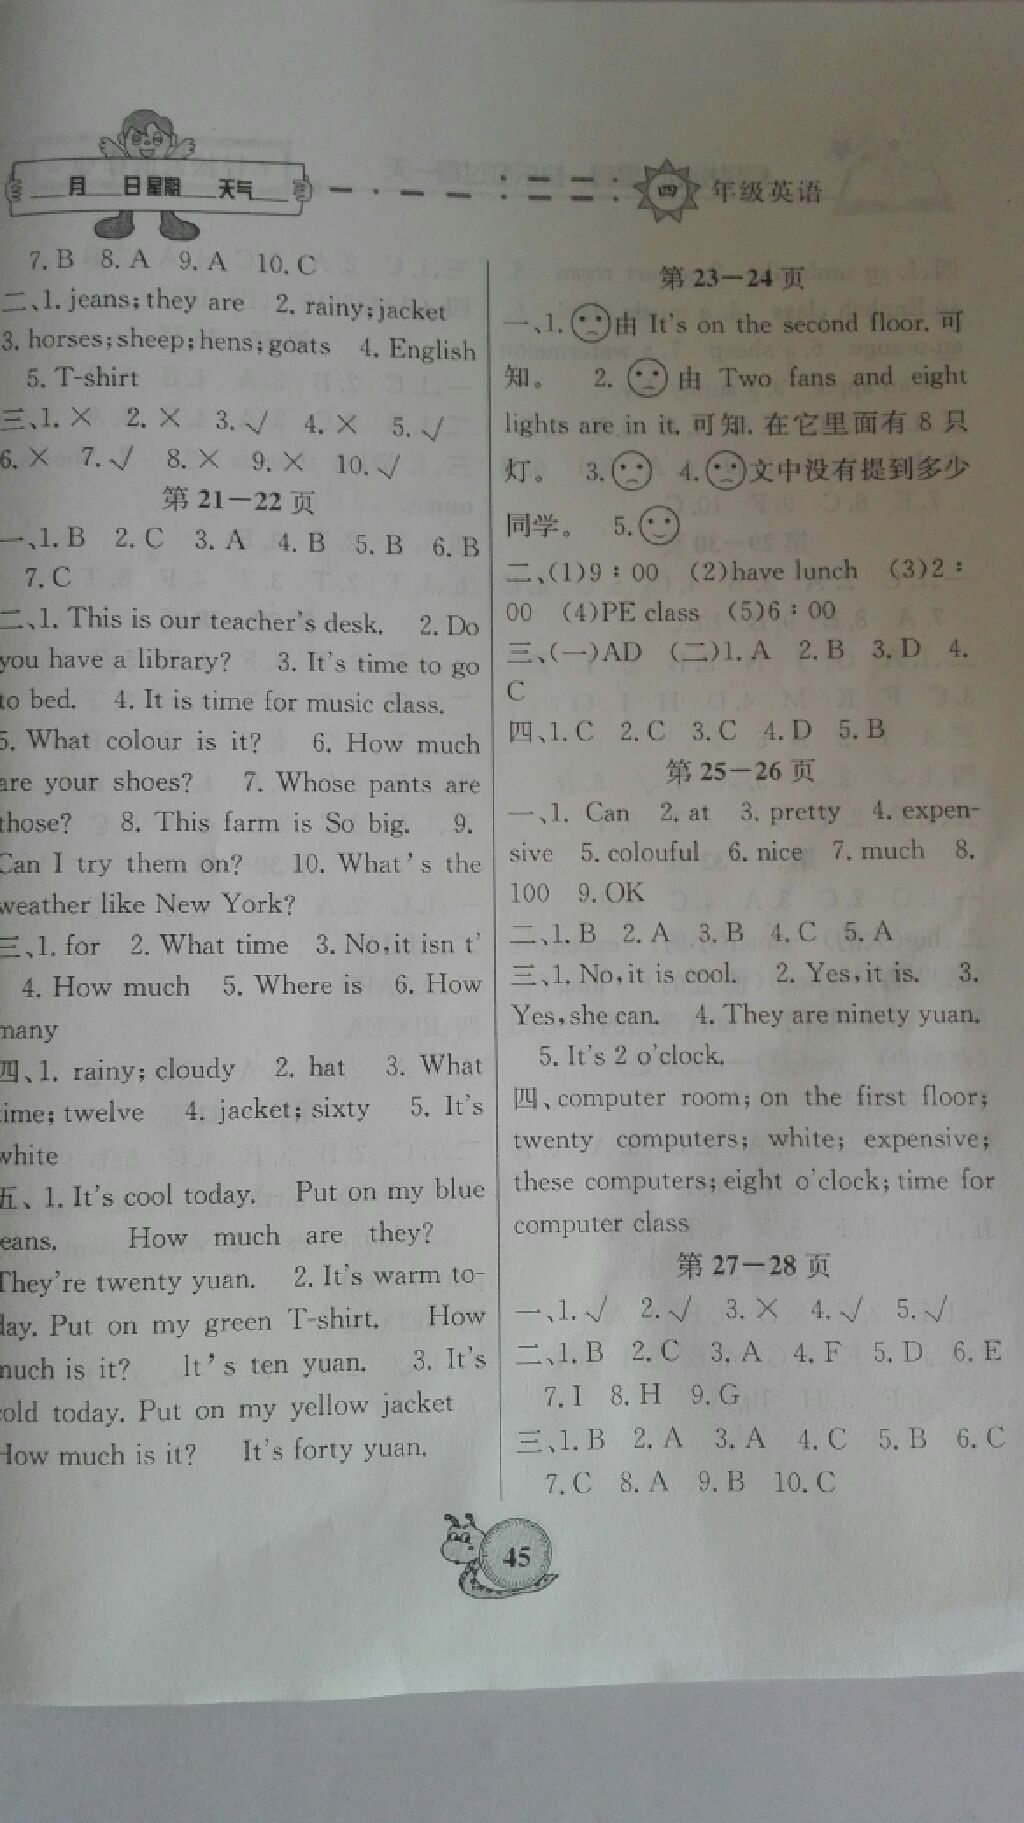 月 日 星期 天气
四 年级英语
7. B 8. A 9. A 10. C
二、1. jeans; they are 2. rainy; jacket
3. horses; sheep; hens; goats 4. English
5. T-shirt
三、1. × 2. × 3. √ 4. × 5. √
6. × 7. √ 8. × 9. × 10. √
第 21－22 页
一、1. B 2. C 3. A 4. B 5. B 6. B
7. C
二、1. This is our teacher's desk. 2. Do
you have a library? 3. It's time to go
to bed. 4. It is time for music class.
5. What colour is it? 6. How much
are your shoes? 7. Whose pants are
those? 8. This farm is So big. 9.
Can I try them on? 10. What's the
weather like New York?
三、1. for 2. What time 3. No, it isn t'
4. How much 5. Where is 6. How
many
四、1. rainy; cloudy 2. hat 3. What
ime; twelve 4. jacket; sixty 5. It's
white
五、1. It's cool today. Put on my blue
eans. How much are they?
They're twenty yuan. 2. It's warm to-
day. Put on my green T-shirt. How
much is it? It's ten yuan. 3. It's
old today. Put on my yellow jacket
How much is it? It's forty yuan.
第 23－24 页
一、1. ☹ 由 It's on the second floor. 可
知。 2. ☹ 由 Two fans and eight
lights are in it. 可知. 在它里面有 8 只
灯。 3. ☹ 4. ☹ 文中没有提到多少
同学。 5. ☺
二、(1)9：00 (2)have lunch (3)2：
00 (4)PE class (5)6：00
三、(一)AD (二)1. A 2. B 3. D 4.
C
四、1. C 2. C 3. C 4. D 5. B
第 25－26 页
一、1. Can 2. at 3. pretty 4. expen-
sive 5. colouful 6. nice 7. much 8.
100 9. OK
二、1. B 2. A 3. B 4. C 5. A
三、1. No, it is cool. 2. Yes, it is. 3.
Yes, she can. 4. They are ninety yuan.
5. It's 2 o'clock.
四、computer room; on the first floor;
twenty computers; white; expensive;
these computers; eight o'clock; time for
computer class
第 27－28 页
一、1. √ 2. √ 3. × 4. √ 5. √
二、1. B 2. C 3. A 4. F 5. D 6. E
7. I 8. H 9. G
三、1. B 2. A 3. A 4. C 5. B 6. C
7. C 8. A 9. B 10. C
45